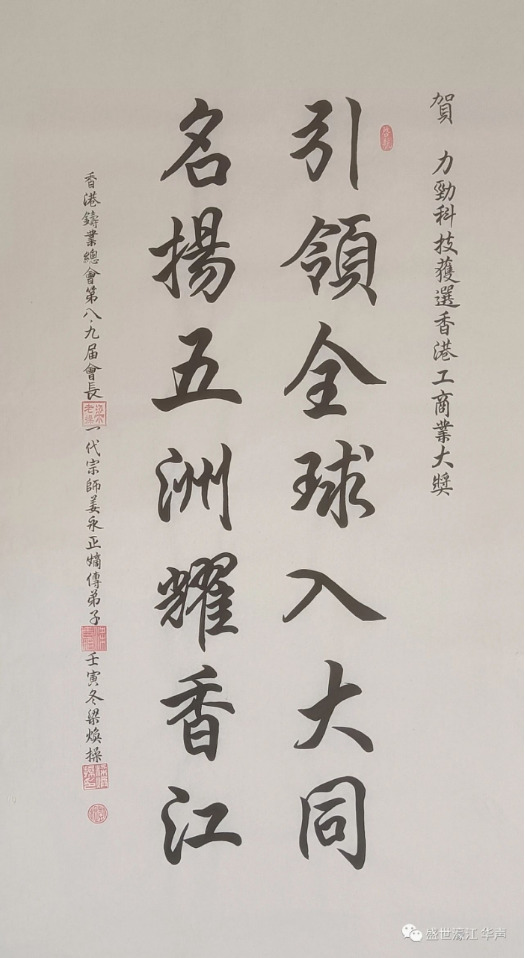 賀 力勁科技獲選香港工商業大獎
引領全球入大同
名揚五洲耀香江
香港鑄業總會第八·九届會長
一代宗師姜永正嫡傳弟子
壬寅冬梁煥操
盛世濠江 华声